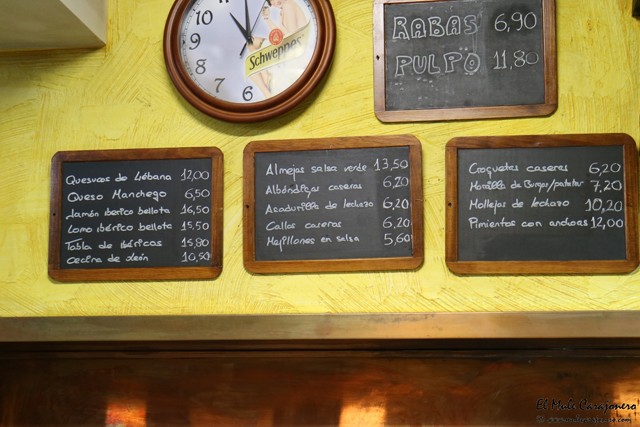 10
9
8
7
6
Schweppes
RABAS 6,90
PULPO 11,80
Quesucos de Liébana 12,00
Queso Manchego 6,50
Jamón iberico bellota 16,50
Lomo ibérico bellota 15,50
Tabla de ibéricos 15,80
Cecina de León 10,50
Almejas salsa verde 13,50
Albóndigas caseras 6,20
Asadurilla de lechazo 6,20
Callos caseros 6,20
Mejillones en salsa 5,60
Croquetas caseras 6,20
Morcilla de Burgos/patatas 7,20
Mollejas de lechazo 10,20
Pimientos con anchoas 12,00
El Mule Carajonero